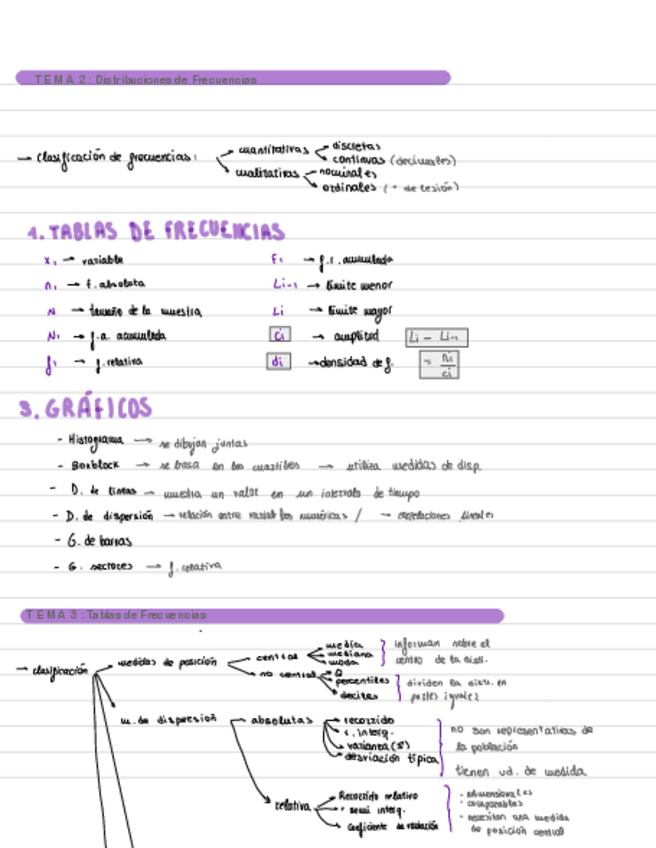 TEMA 2: Distribuciones de Frecuencias
→ clasificación de frecuencias:
cuantitativas
discretas
continuas (decimales)
cualitativas
nominales
ordinales
1. TABLAS DE FRECUENCIAS
xᵢ → variable
Fᵢ → f.r. acumulada
nᵢ → f. absoluta
Lᵢ₋₁ → límite menor
N → tamaño de la muestra
Li → límite mayor
Nᵢ → f.a. acumulada
ci → amplitud
Li - Li-1
fᵢ → f. relativa
di → densidad de f.
= ni/ci
3. GRÁFICOS
- Histograma → se dibujan juntas
- Boxblock → se basa en los cuartiles → utiliza medidas de disp.
- D. de líneas → muestra un valor en un intervalo de tiempo
- D. de dispersión → relación entre variables numéricas / → correlaciones lineales
- G. de barras
- G. sectores → f. relativa
TEMA 3: Tablas de Frecuencias
→ clasificación
medidas de posición
central
media
mediana
moda
informan sobre el
centro de la distr.
no central
Q
percentiles
deciles
dividen la distr. en
partes iguales
m. de dispersión
absolutas
recorrido
r. interq.
varianza (s²)
desviación típica
no son representativas de
la población
tienen ud. de medida
relativa
Recorrido relativo
r semi interq.
coeficiente de variación
- adimensionales
- comparables
- necesitan una medida
de posición central